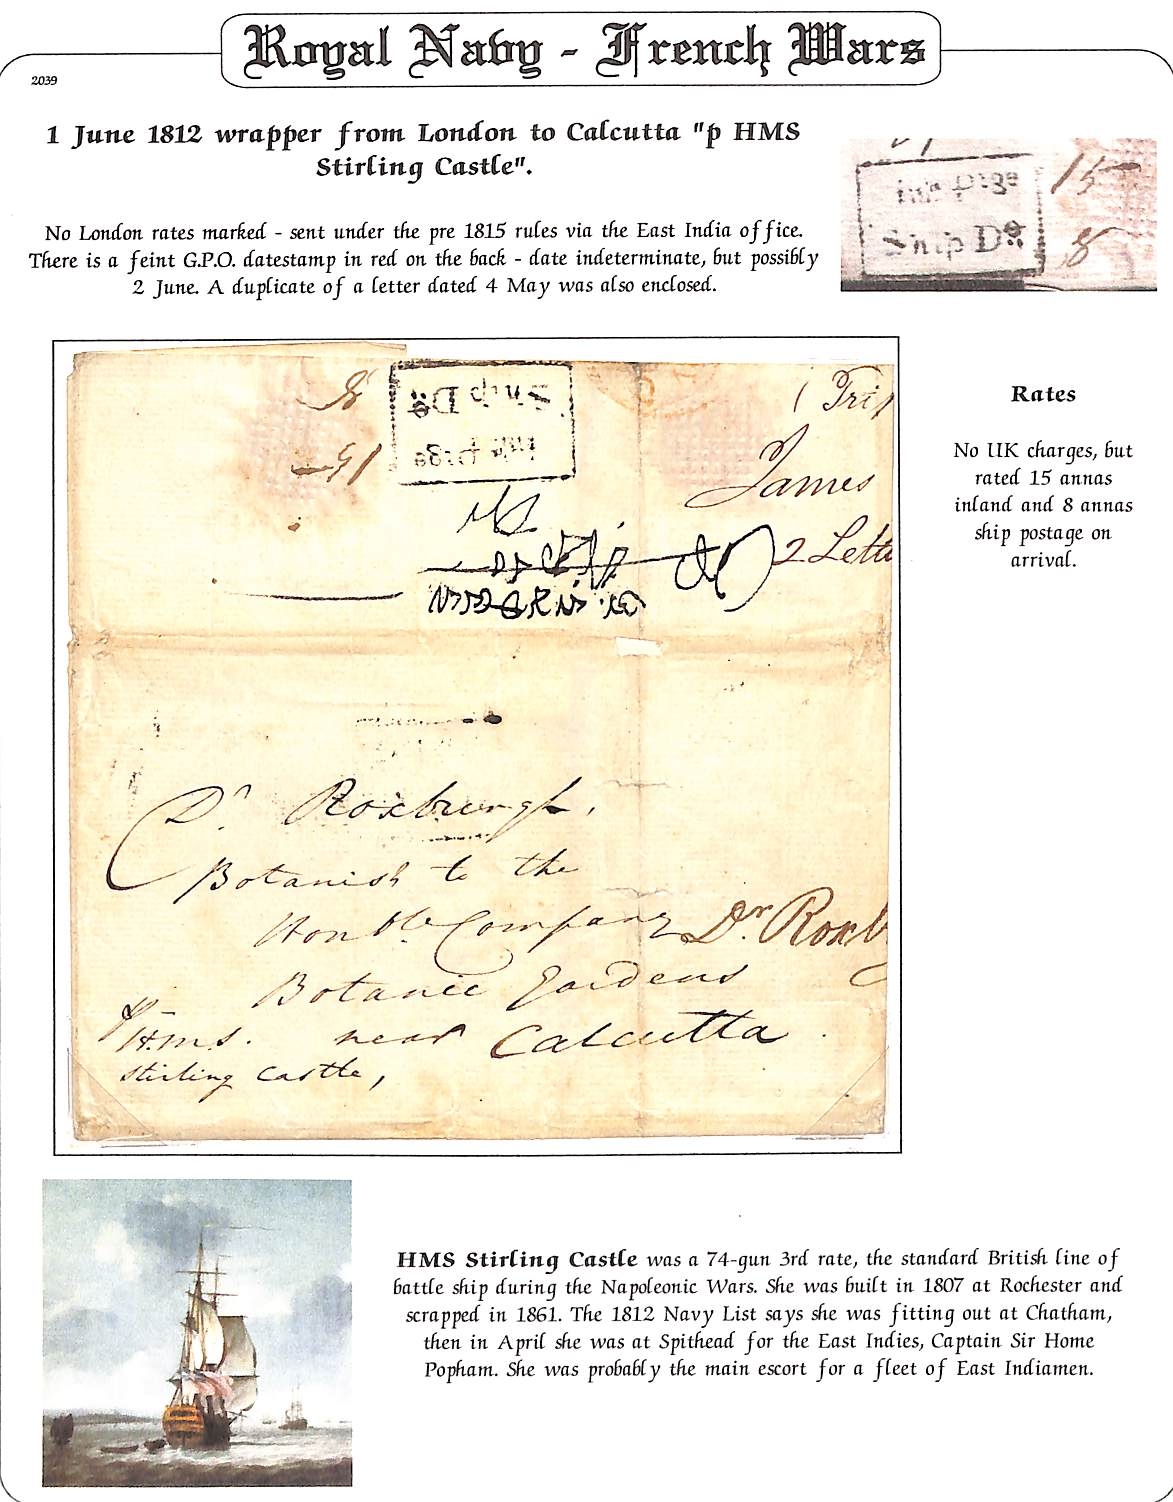 Royal Navy - French Wars
2039
1 June 1812 wrapper from London to Calcutta "p HMS
Stirling Castle".
No London rates marked - sent under the pre 1815 rules via the East India office.
There is a feint G.P.O. datestamp in red on the back - date indeterminate, but possibly
2 June. A duplicate of a letter dated 4 May was also enclosed.
Ship Do
15
8
Rates
No UK charges, but
rated 15 annas
inland and 8 annas
ship postage on
arrival.
8
Ship Do
15
James
2 Lette
Dr Roxburgh,
Botanist to the
Honble Company
Dr. Roxb
Botanic Gardens
near Calcutta
p
H.M.S.
Stirling Castle,
HMS Stirling Castle was a 74-gun 3rd rate, the standard British line of
battle ship during the Napoleonic Wars. She was built in 1807 at Rochester and
scrapped in 1861. The 1812 Navy List says she was fitting out at Chatham,
then in April she was at Spithead for the East Indies, Captain Sir Home
Popham. She was probably the main escort for a fleet of East Indiamen.